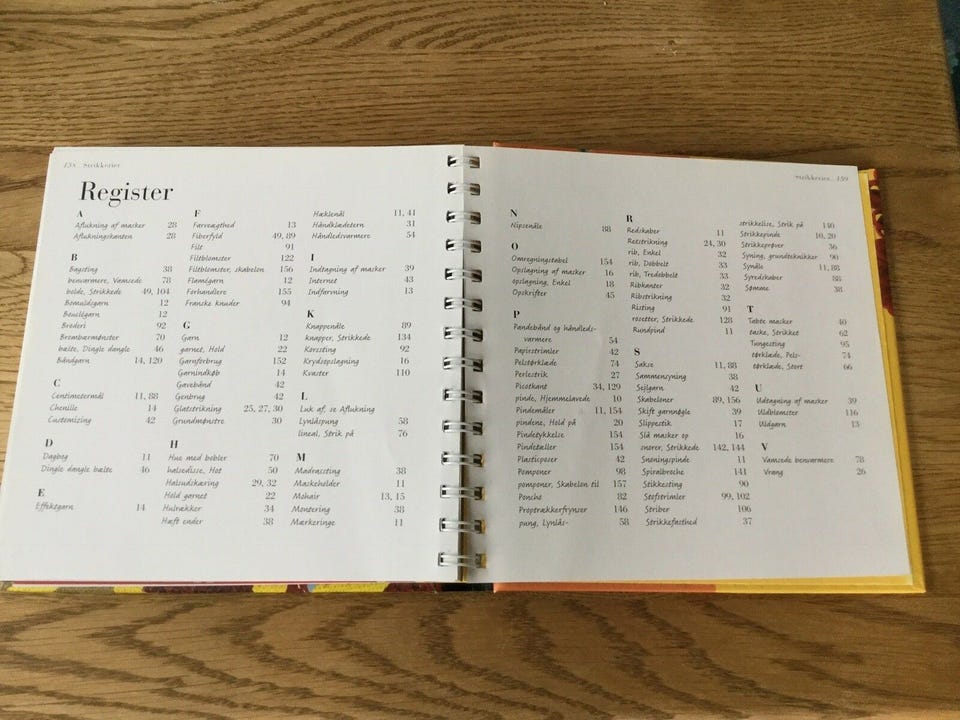 158 Strikkerier
Register
A
Aflukning af masker 28
Aflukningskanten 28
B
Bagsting 38
benvarmere, Vamsede 78
bolde, Strikkede 49, 104
Bomuldsgarn 12
Bouclégarn 12
Broderi 92
Brombærmønster 70
bælte, Dingle dangle 46
Båndgarn 14, 120
C
Centimetermål 11, 88
Chenille 14
Customizing 42
D
Dagbog 11
Dingle dangle bælte 46
E
Effektgarn 14
F
Farveægthed 13
Fiberfyld 49, 89
Filt 91
Filtblomster 122
Filtblomster, skabelon 156
Flamégarn 12
Forhandlere 155
Franske knuder 94
G
Garn 12
garnet, Hold 22
Garnforbrug 152
Garnindkøb 14
Gavebånd 42
Genbrug 42
Glatstrikning 25, 27, 30
Grundmønstre 30
H
Hue med bobler 70
halsedisse, Hot 50
Halsudskæring 29, 32
Hold garnet 22
Hulrækker 34
Hæft ender 38
Hæklenål 11, 41
Håndklædetern 31
Håndledsvarmere 54
I
Indtagning af masker 39
Internet 43
Indfarvning 13
K
Knappenåle 89
knapper, Strikkede 134
Korssting 92
Krydsopslagning 16
Kvaster 110
L
Luk af, se Aflukning
Lynlåspung 58
lineal, Strik på 76
M
Madrassting 38
Maskeholder 11
Mohair 13, 15
Montering 38
Mærkeringe 11
Strikkerier 159
N
Nipsenåle 88
O
Omregningstabel 154
Opslagning af masker 16
opslagning, Enkel 18
Opskrifter 45
P
Pandebånd og håndleds-
varmere 54
Papirstrimler 42
Pelstørklæde 74
Perlestrik 27
Picotkant 34, 129
pinde, Hjemmelavede 10
Pindemåler 11, 154
pindene, Hold på 20
Pindetykkelse 154
Pindetæller 154
Plasticposer 42
Pomponer 98
pomponer, Skabelon til 157
Poncho 82
Proptrækkerfrynser 146
pung, Lynlås- 58
R
Redskaber 11
Retstrikning 24, 30
rib, Enkel 32
rib, Dobbelt 33
rib, Tredobbelt 33
Ribkanter 32
Ribstrikning 32
Risting 91
rosetter, Strikkede 128
Rundpind 11
S
Sakse 11, 88
Sammensyning 38
Sejlgarn 42
Skabeloner 89, 156
Skift garnnøgle 39
Slippestik 17
Slå masker op 16
snorer, Strikkede 142, 144
Snoningspinde 11
Spiralbroche 141
Stikkesting 90
Stofstrimler 99, 102
Striber 106
Strikkefasthed 37
strikkelise, Strik på 140
Strikkepinde 10, 20
Strikkeprøver 36
Syning, grundteknikker 90
Synåle 11, 88
Syredskaber 88
Sømme 38
T
Tabte masker 40
taske, Strikket 62
Tungesting 95
tørklæde, Pels- 74
tørklæde, Stort 66
U
Udtagning af masker 39
Uldblomster 116
Uldgarn 13
V
Vamsede benvarmere 78
Vrang 26